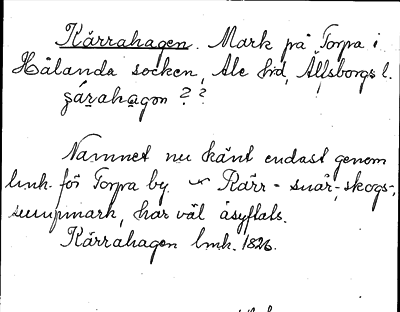 Kärrahagen. Mark på Torpa i
Hålanda socken, Ale hrd, Älfsborgs l.
ʒárahagon ? ?
Namnet nu känt endast genom
lmk. för Torpa by. Kärr - snår-, skogs-,
sumpmark, har väl åsyftats.
Kärrahagen lmk. 1826.